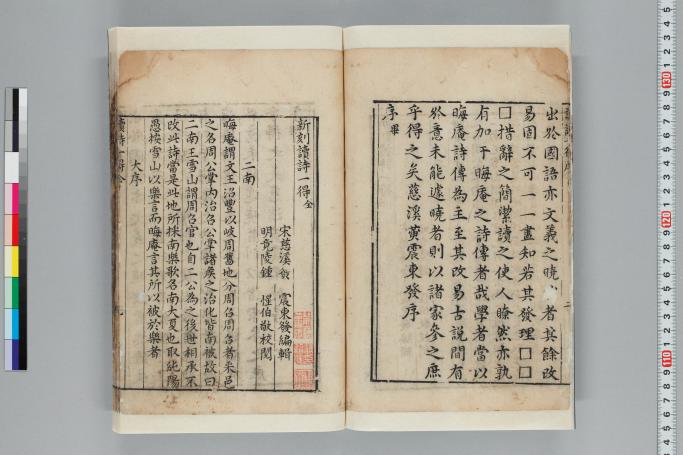 出於國語亦文義之曉 者其餘改
易固不可一一盡知若其發理囗囗
囗措辭之簡潔讀之使人瞭然亦孰
有加于晦庵之詩傳者哉學者當以
晦庵詩傳為主至其改易古說間有
於意未能遽曉者則以諸家參之庶
乎得之矣慈溪黃震東發序
序畢
新刻讀詩一得全
宋慈溪黃 震東發編輯
明竟陵鍾 惺伯敬校閱
二南
晦庵謂文王治豐以岐周舊地分周召周召者采邑
之名周公掌内治召公掌諸矦之治化皆南被故曰
二南王雪山謂周召官也自二公為之後世相承不
改此詩當是此地所採南樂歌名南大夏也取純陽
愚按雪山以樂言而晦庵言其所以被於樂者
大序
讀詩一得全